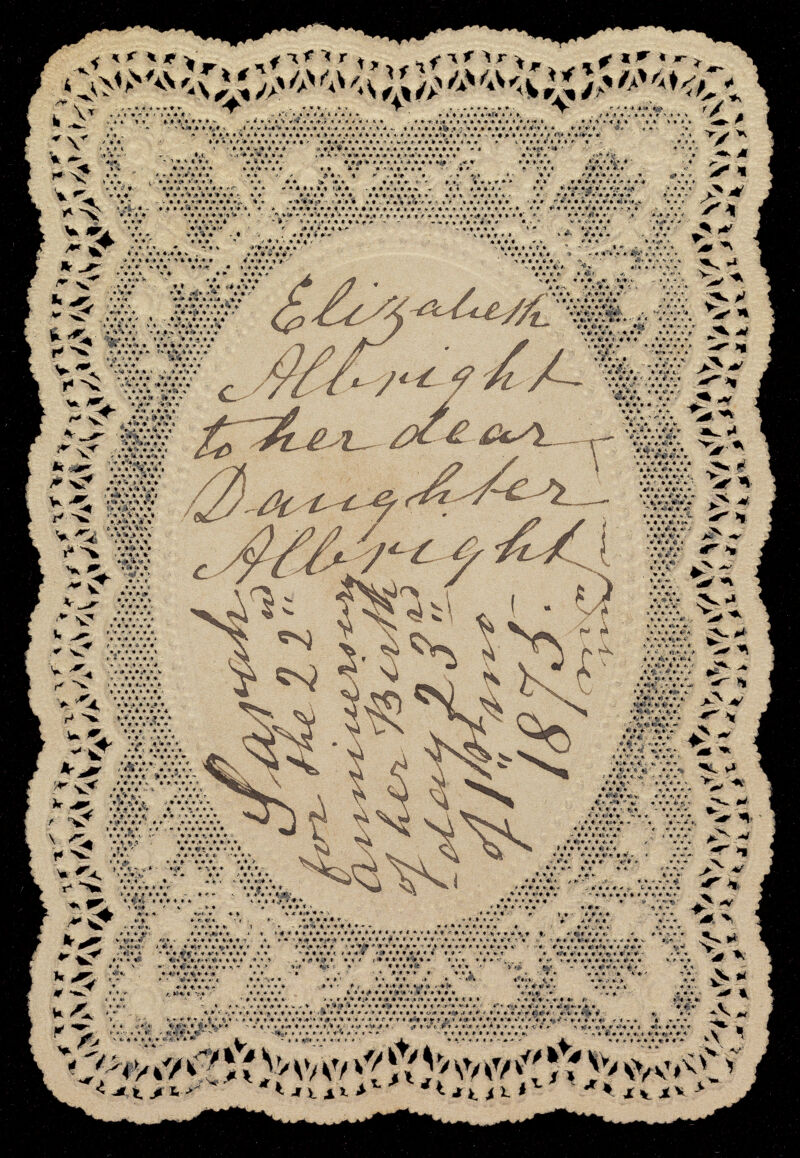 Elizabeth
Albright
to her dear
Daughter
Albright
Sarah
for the 22nd
anniversary
of her Birth
-day 23rd
of 1st mo
1875.